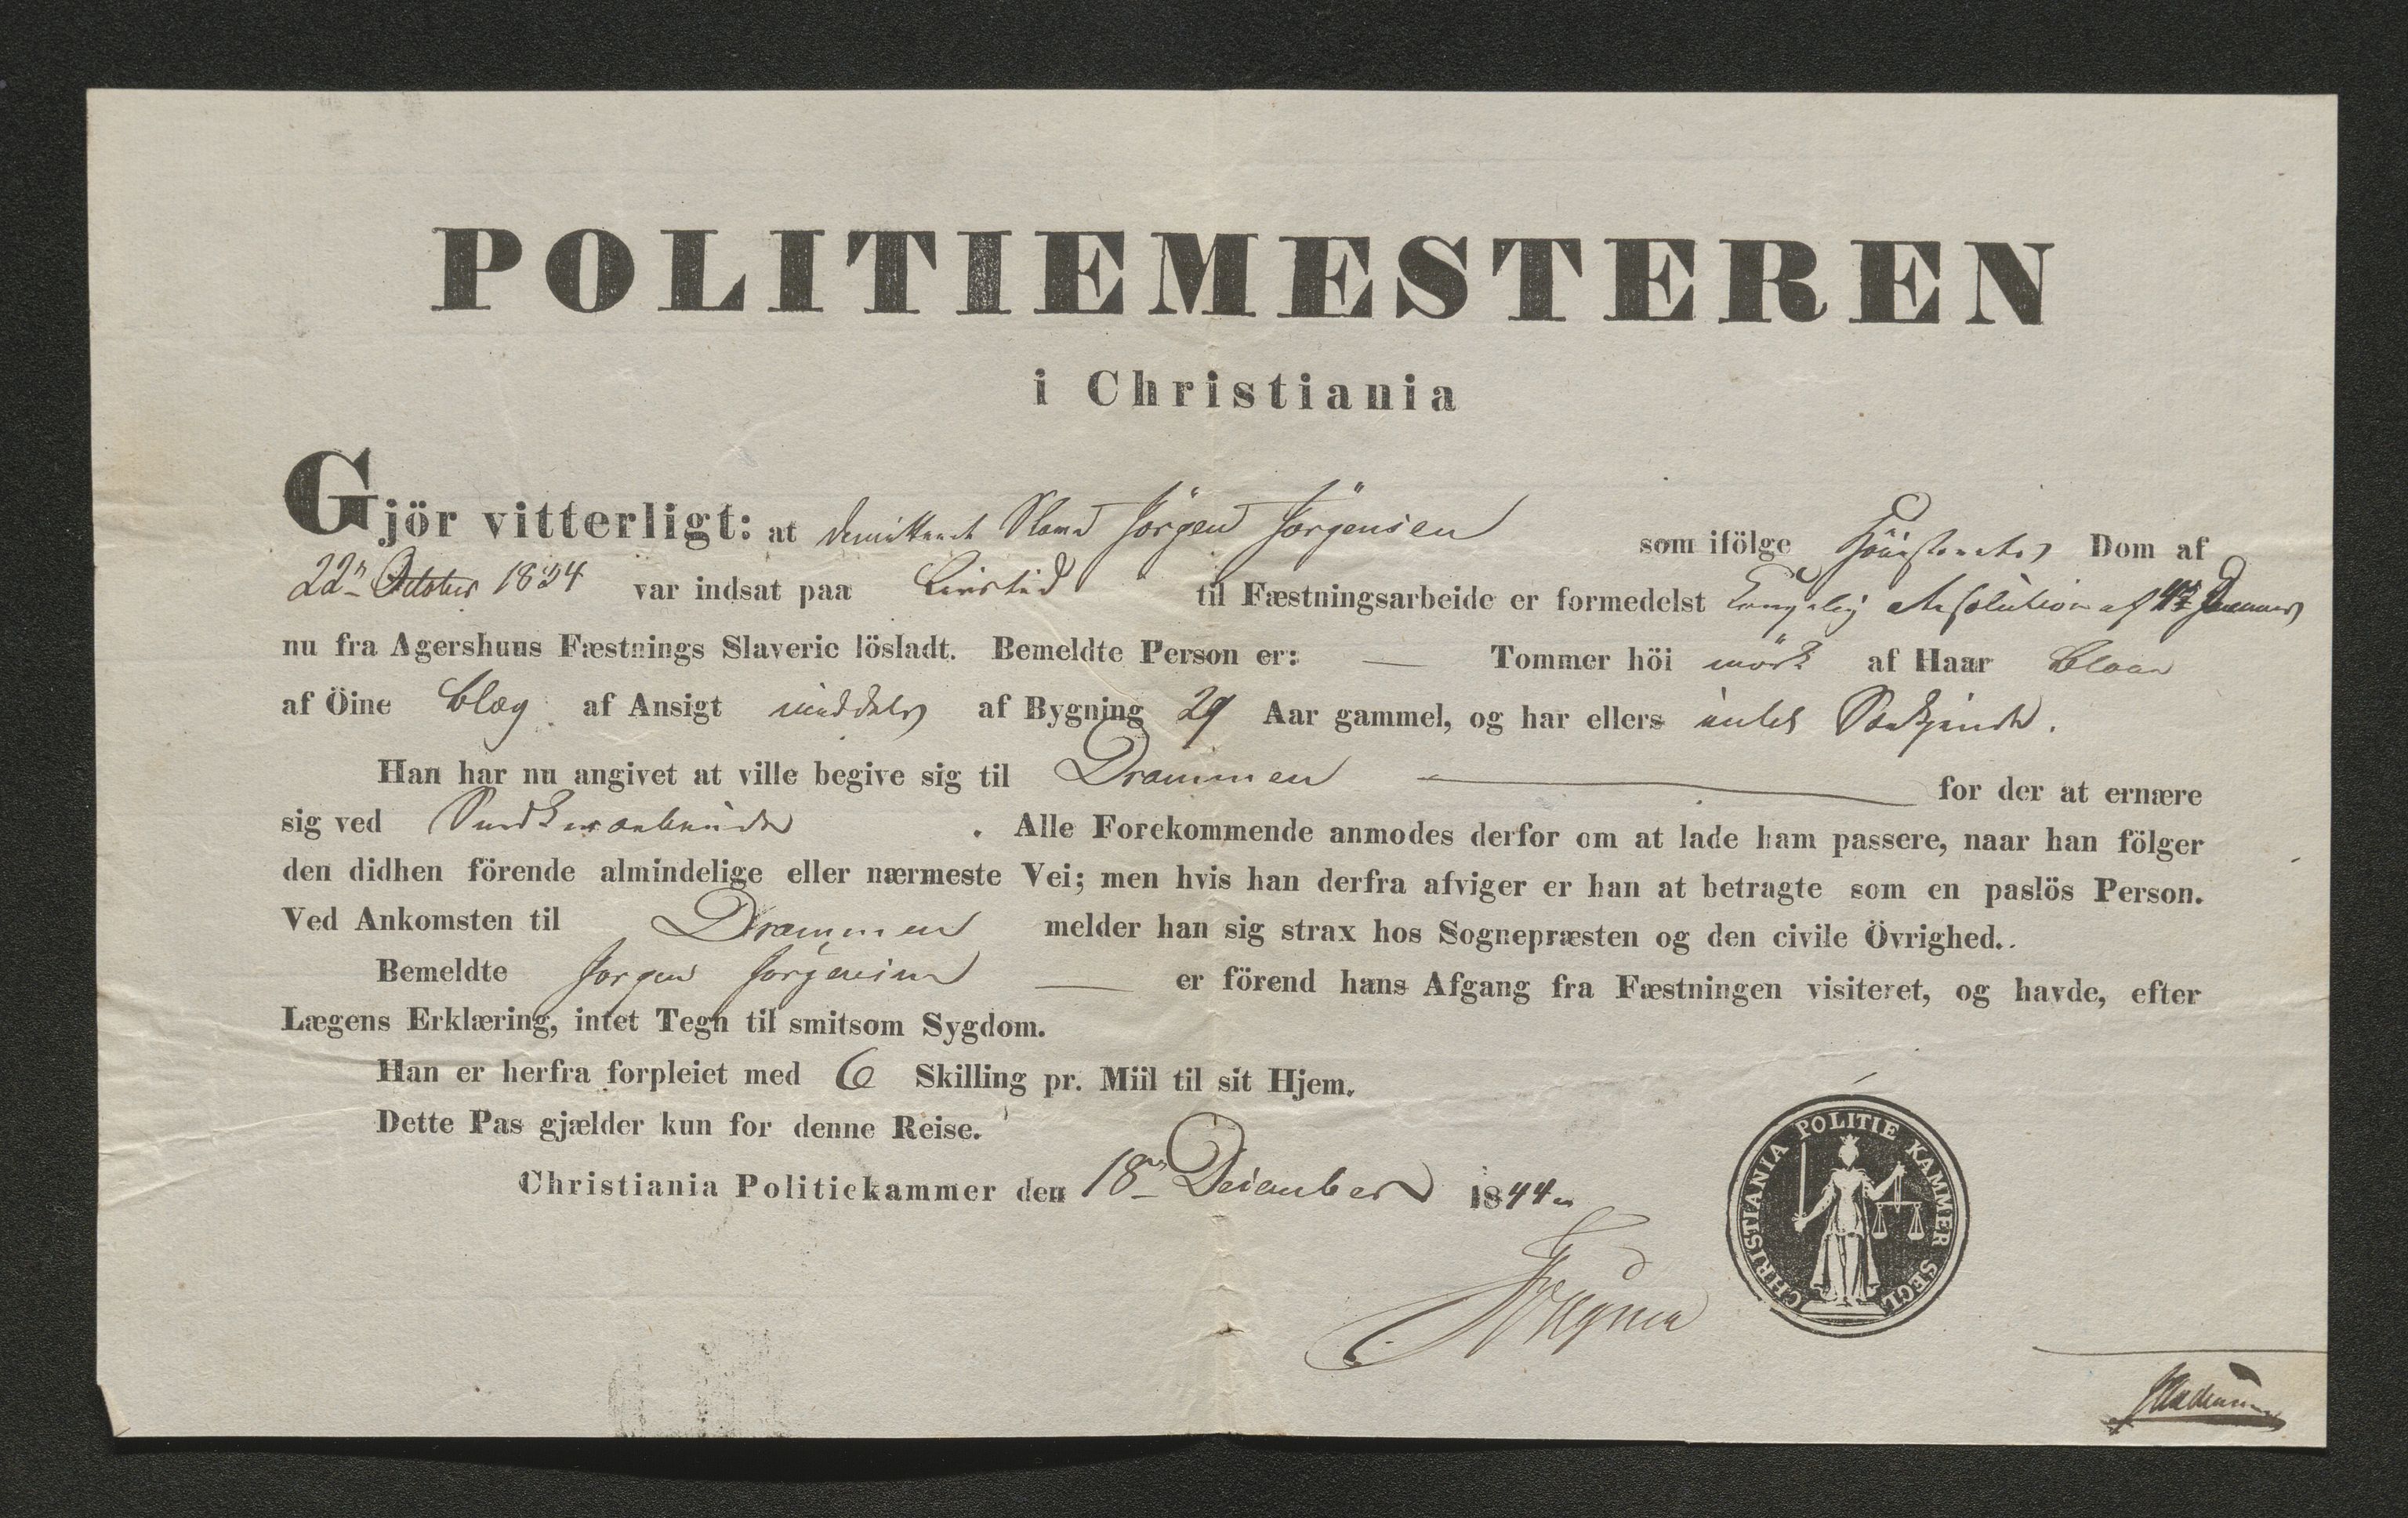 POLITIEMESTEREN
i Christiania
Gjör vitterligt: at demitteret Slave Jörgen Jörgensen som ifölge Höiesterets Dom af
22de October 1834 var indsat paa Livstid til Fæstningsarbeide er formedelst Kongelig Resolution af
nu fra Agershuus Fæstnings Slaverie lösladt. Bemeldte Person er: — Tommer höi mörk af Haar blaae
af Öine bleg af Ansigt middels af Bygning 29 Aar gammel, og har ellers intet
Han har nu angivet at ville begive sig til Drammen — for der at ernære
sig ved Snedkerarbeide . Alle Forekommende anmodes derfor om at lade ham passere, naar han fölger
den didhen förende almindelige eller nærmeste Vei; men hvis han derfra afviger er han at betragte som en paslös Person.
Ved Ankomsten til Drammen melder han sig strax hos Sognepræsten og den civile Övrighed..
Bemeldte Jörgen Jörgensen — er förend hans Afgang fra Fæstningen visiteret, og havde, efter
Lægens Erklæring, intet Tegn til smitsom Sygdom.
Han er herfra forpleiet med 6 Skilling pr. Miil til sit Hjem.
Dette Pas gjælder kun for denne Reise.
Christiania Politiekammer den 18de December 1844
CHRISTIANIA POLITIE KAMMER SEGL